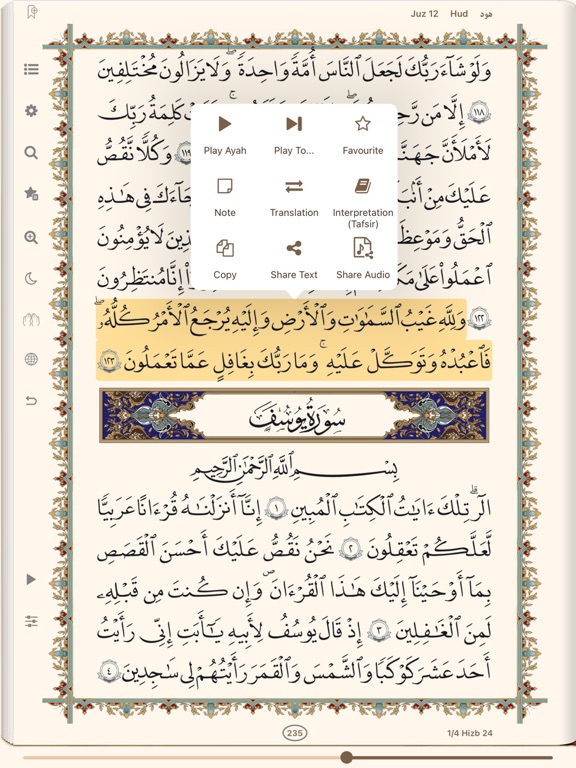 Juz 12 Hud هود
وَلَوْ شَآءَ رَبُّكَ لَجَعَلَ ٱلنَّاسَ أُمَّةً وَٰحِدَةً ۖ وَلَا يَزَالُونَ مُخْتَلِفِينَ
١١٨ إِلَّا مَن كَلِمَةُ رَبِّكَ
لَأَمْلَأَنَّ ١١٩ وَكُلًّا نَّقُصُّ
عَلَيْكَ مِنْ جَآءَكَ فِى هَٰذِهِ
ٱلْحَقُّ لَا يُؤْمِنُونَ
ٱعْمَلُوا۟ عَلَىٰ إِنَّا مُنتَظِرُونَ
Play Ayah Play To... Favourite
Note Translation Interpretation
(Tafsir)
Copy Share Text Share Audio
١٢٢ وَلِلَّهِ غَيْبُ ٱلسَّمَٰوَٰتِ وَٱلْأَرْضِ وَإِلَيْهِ يُرْجَعُ ٱلْأَمْرُ كُلُّهُۥ
فَٱعْبُدْهُ وَتَوَكَّلْ عَلَيْهِ ۚ وَمَا رَبُّكَ بِغَٰفِلٍ عَمَّا تَعْمَلُونَ ١٢٣
سُورَةُ يُوسُفَ
بِسْمِ ٱللَّهِ ٱلرَّحْمَٰنِ ٱلرَّحِيمِ
الٓر ۚ تِلْكَ ءَايَٰتُ ٱلْكِتَٰبِ ٱلْمُبِينِ ١ إِنَّآ أَنزَلْنَٰهُ قُرْءَٰنًا عَرَبِيًّا
لَّعَلَّكُمْ تَعْقِلُونَ ٢ نَحْنُ نَقُصُّ عَلَيْكَ أَحْسَنَ ٱلْقَصَصِ
بِمَآ أَوْحَيْنَآ إِلَيْكَ هَٰذَا ٱلْقُرْءَانَ وَإِن كُنتَ مِن قَبْلِهِۦ
لَمِنَ ٱلْغَٰفِلِينَ ٣ إِذْ قَالَ يُوسُفُ لِأَبِيهِ يَٰٓأَبَتِ إِنِّى رَأَيْتُ
أَحَدَ عَشَرَ كَوْكَبًا وَٱلشَّمْسَ وَٱلْقَمَرَ رَأَيْتُهُمْ لِى سَٰجِدِينَ ٤
235 1/4 Hizb 24